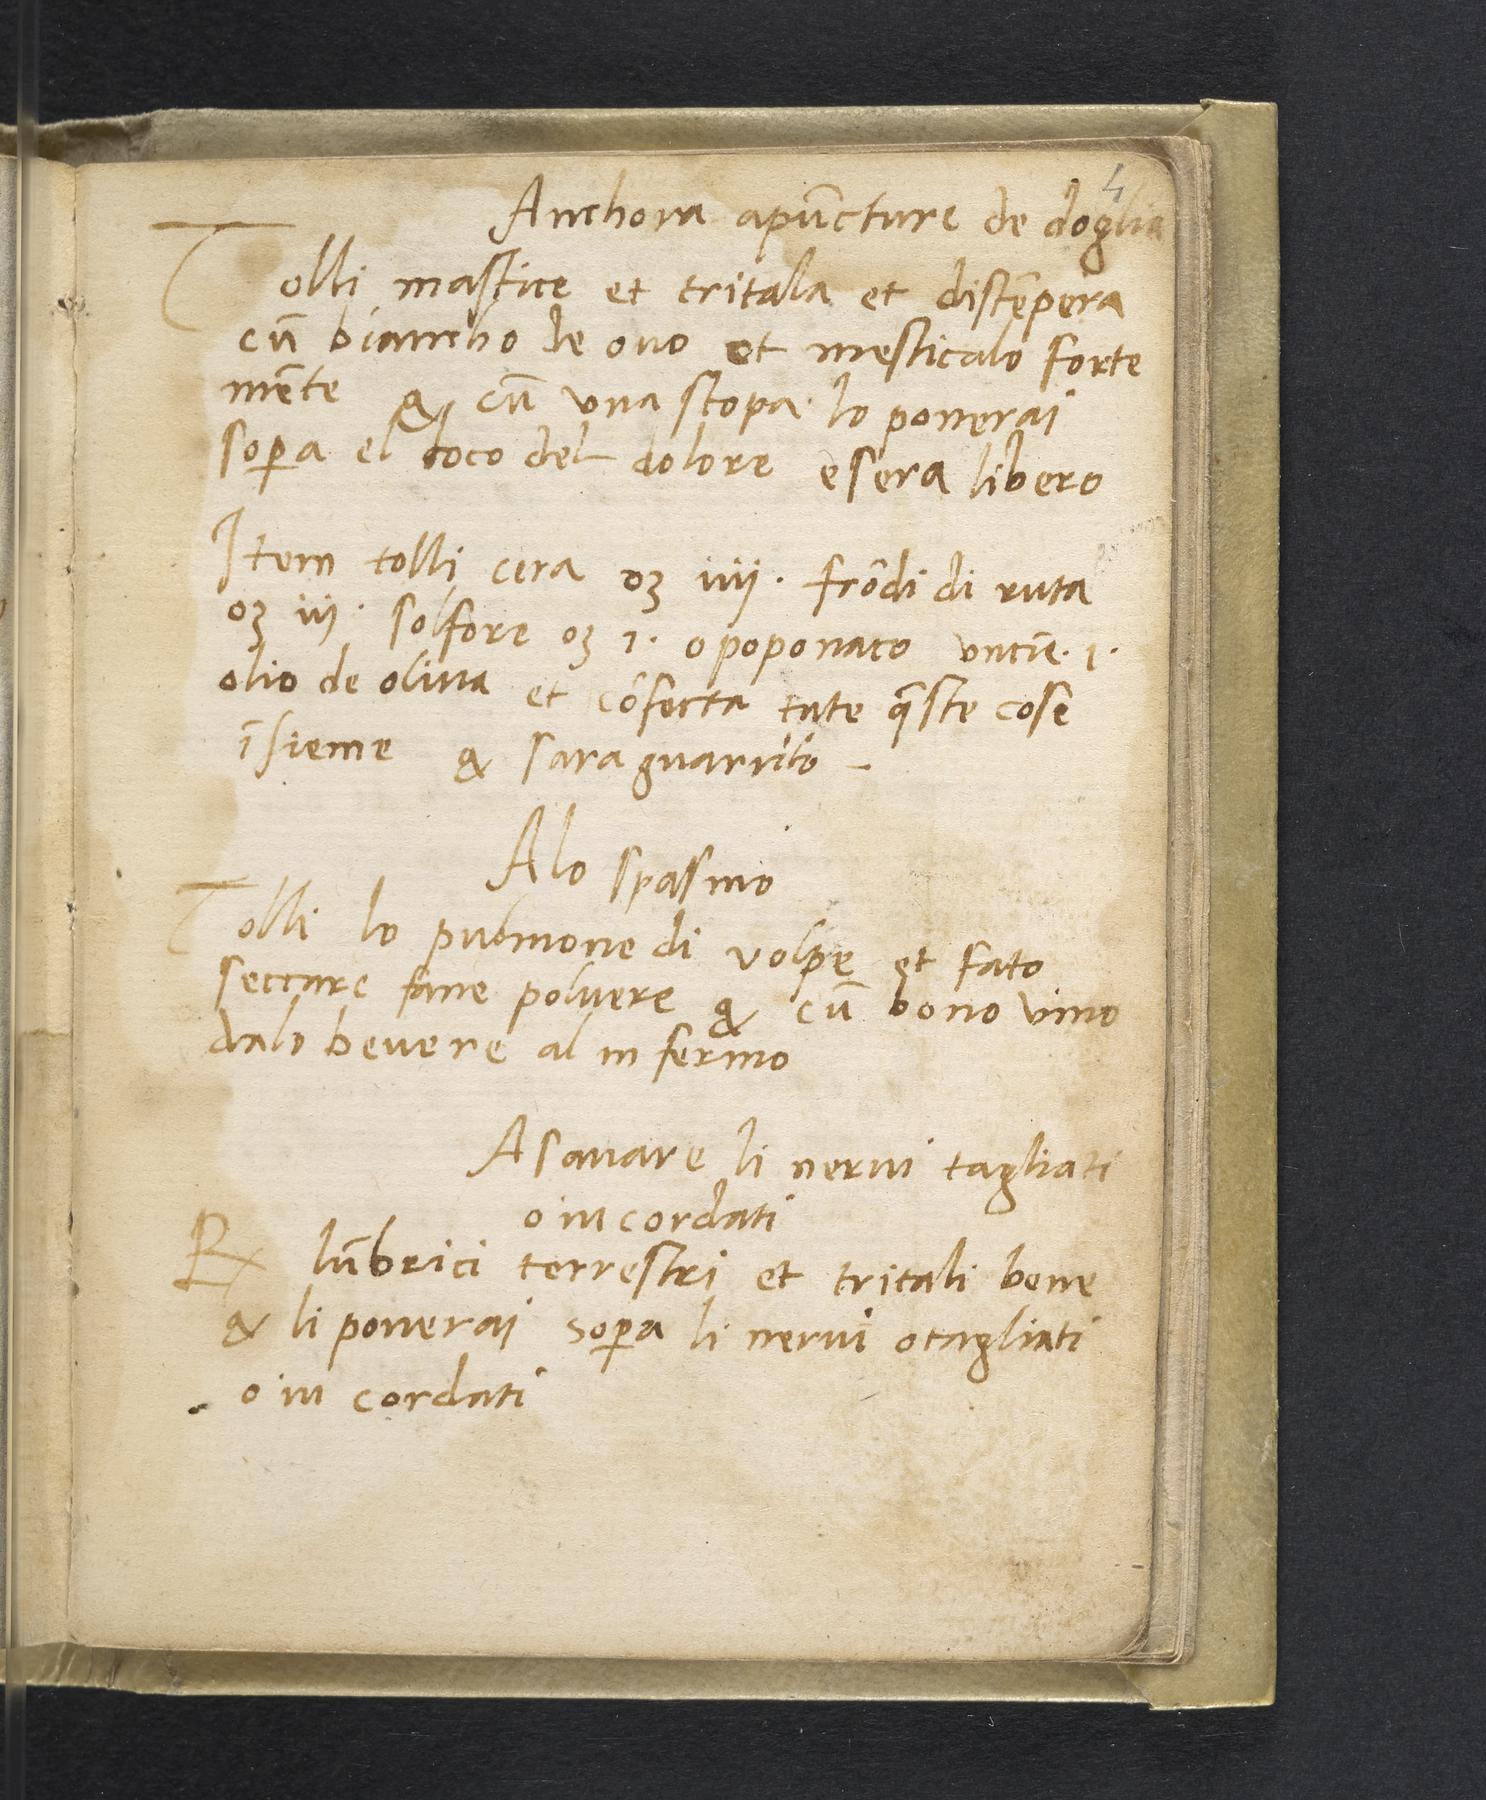 4
Anchora apūcture de doglia
Tolli mastice et tritala et distēpera
cū biancho de ovo et mesticalo forte
mēte & cū una stopa. lo ponerai
sop̄a el loco del dolore e sera libero
Item tolli cera oʒ iiij. frōdi di ruta
oʒ iij. solfore oʒ 1. opoponaco untie. 1.
olio de oliva et cōfecta tute q̄ste cose
īsieme & sara guarrito -
Alo spasmo
Tolli lo pulmone di volpe et fato
seccare fane polvere & cū bono vino
dalo bevere al in fermo
A sanare li nervi tagliati
o in cordati
℞ lūbrici terrestri et tritali bene
& li ponerai sop̄a li nervi o tagliati
o in cordati